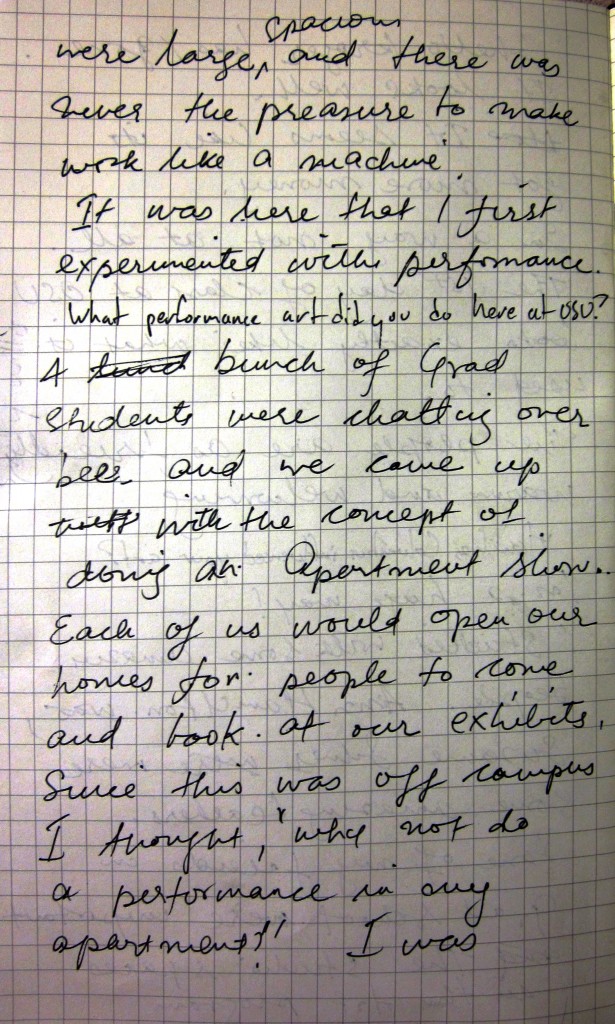 spacious
were large, ^ and there was
never the preasure to make
work like a machine.
It was here that I first
experimented with perfomance.
What performance art did you do here at OSU?
A bunch of Grad
students were chatting over
beer and we came up
with the concept of
doing an Apartment show.
Each of us would open our
homes for people to come
and look at our exhibits.
Since this was off campus
I thought, "why not do
a performance in my
apartment?" I was